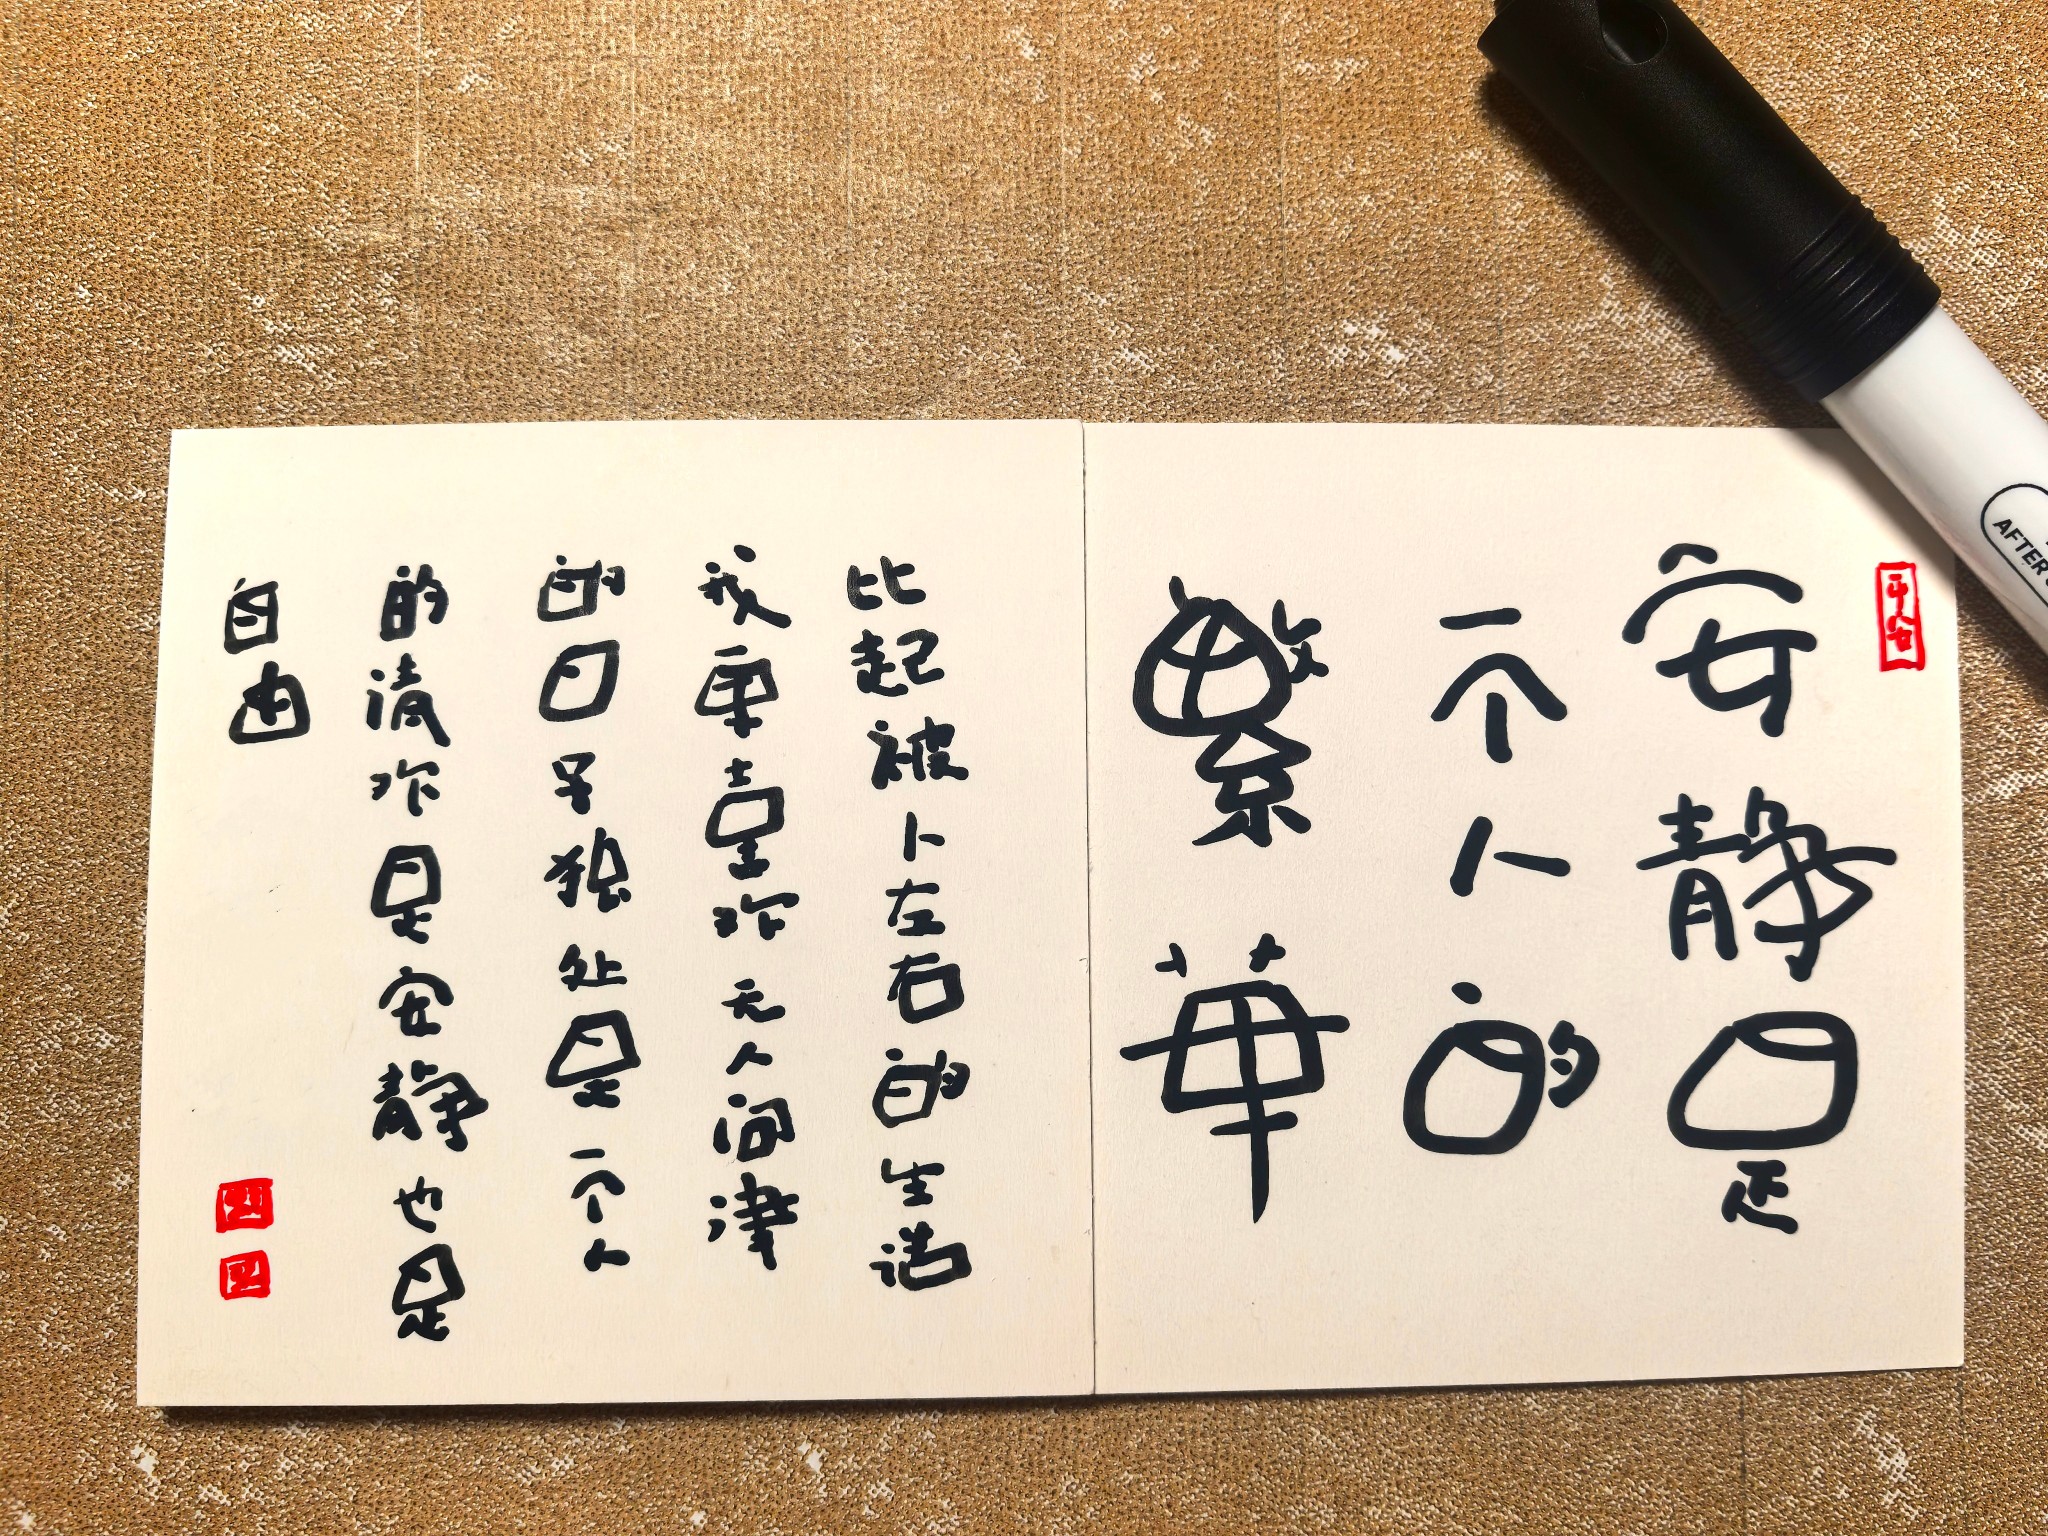 安静是
一个人的
繁華
比起被人左右的生活
我更喜欢无人问津
的日子独处是一个人
的清欢是安静也是
自由
AFTER